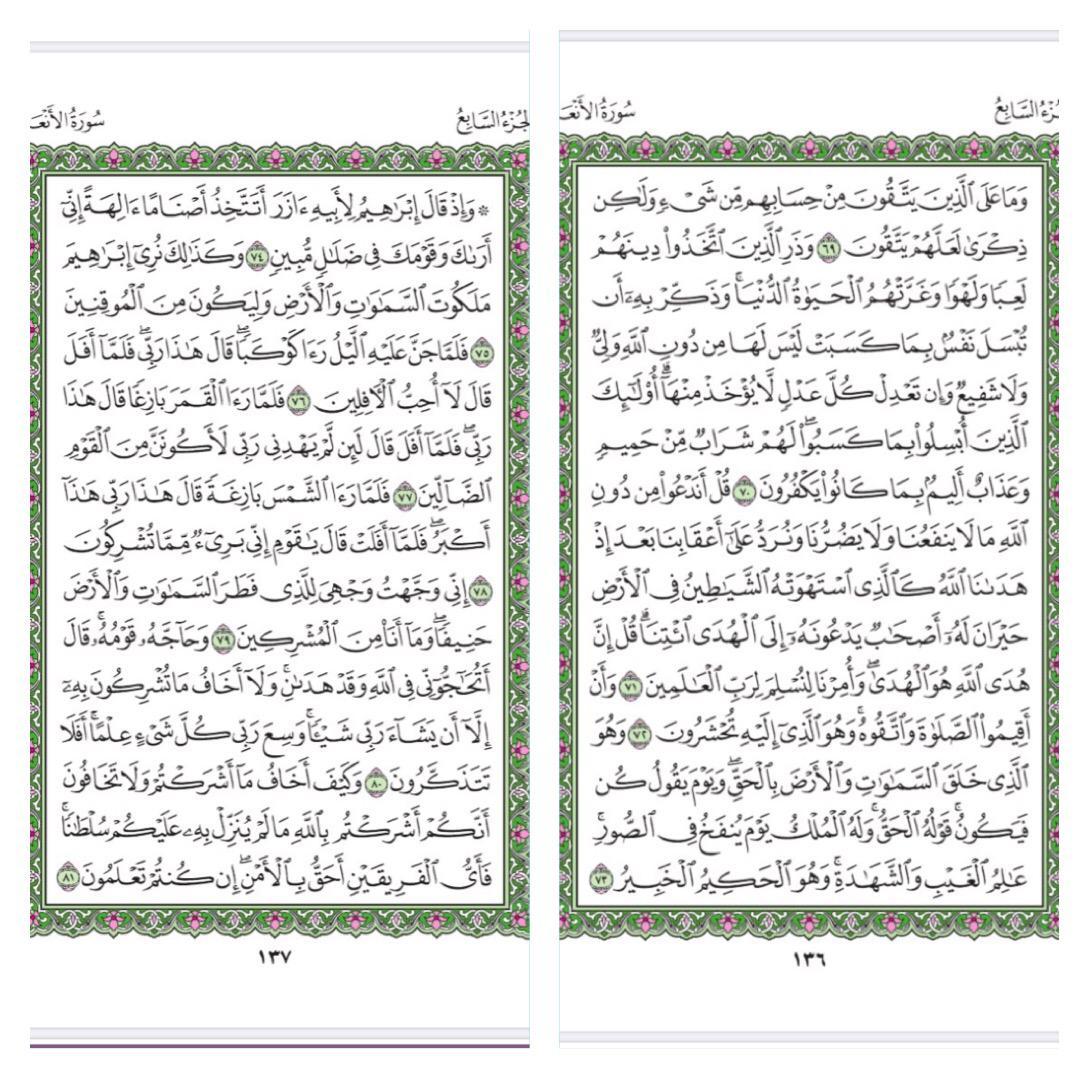 الجُزْءُ السَّابِعُ
سُورَةُ الأَنْعَ
وَمَا عَلَى ٱلَّذِينَ يَتَّقُونَ مِنْ حِسَابِهِم مِّن شَىْءٍ وَلَٰكِن
ذِكْرَىٰ لَعَلَّهُمْ يَتَّقُونَ ٦٩ وَذَرِ ٱلَّذِينَ ٱتَّخَذُوا۟ دِينَهُمْ
لَعِبًا وَلَهْوًا وَغَرَّتْهُمُ ٱلْحَيَوٰةُ ٱلدُّنْيَا ۚ وَذَكِّرْ بِهِۦٓ أَن
تُبْسَلَ نَفْسٌۢ بِمَا كَسَبَتْ لَيْسَ لَهَا مِن دُونِ ٱللَّهِ وَلِىٌّ
وَلَا شَفِيعٌ وَإِن تَعْدِلْ كُلَّ عَدْلٍ لَّا يُؤْخَذْ مِنْهَآ ۗ أُو۟لَٰٓئِكَ
ٱلَّذِينَ أُبْسِلُوا۟ بِمَا كَسَبُوا۟ ۖ لَهُمْ شَرَابٌ مِّنْ حَمِيمٍ
وَعَذَابٌ أَلِيمٌۢ بِمَا كَانُوا۟ يَكْفُرُونَ ٧٠ قُلْ أَنَدْعُوا۟ مِن دُونِ
ٱللَّهِ مَا لَا يَنفَعُنَا وَلَا يَضُرُّنَا وَنُرَدُّ عَلَىٰٓ أَعْقَابِنَا بَعْدَ إِذْ
هَدَىٰنَا ٱللَّهُ كَٱلَّذِى ٱسْتَهْوَتْهُ ٱلشَّيَٰطِينُ فِى ٱلْأَرْضِ
حَيْرَانَ لَهُۥٓ أَصْحَٰبٌ يَدْعُونَهُۥٓ إِلَى ٱلْهُدَى ٱئْتِنَا ۗ قُلْ إِنَّ
هُدَى ٱللَّهِ هُوَ ٱلْهُدَىٰ ۖ وَأُمِرْنَا لِنُسْلِمَ لِرَبِّ ٱلْعَٰلَمِينَ ٧١ وَأَنْ
أَقِيمُوا۟ ٱلصَّلَوٰةَ وَٱتَّقُوهُ ۚ وَهُوَ ٱلَّذِىٓ إِلَيْهِ تُحْشَرُونَ ٧٢ وَهُوَ
ٱلَّذِى خَلَقَ ٱلسَّمَٰوَٰتِ وَٱلْأَرْضَ بِٱلْحَقِّ ۖ وَيَوْمَ يَقُولُ كُن
فَيَكُونُ ۚ قَوْلُهُ ٱلْحَقُّ ۚ وَلَهُ ٱلْمُلْكُ يَوْمَ يُنفَخُ فِى ٱلصُّورِ ۚ
عَٰلِمُ ٱلْغَيْبِ وَٱلشَّهَٰدَةِ ۚ وَهُوَ ٱلْحَكِيمُ ٱلْخَبِيرُ ٧٣
١٣٦
الجُزْءُ السَّابِعُ
سُورَةُ الأَنْعَ
۞ وَإِذْ قَالَ إِبْرَٰهِيمُ لِأَبِيهِ ءَازَرَ أَتَتَّخِذُ أَصْنَامًا ءَالِهَةً إِنِّىٓ
أَرَىٰكَ وَقَوْمَكَ فِى ضَلَٰلٍ مُّبِينٍ ٧٤ وَكَذَٰلِكَ نُرِىٓ إِبْرَٰهِيمَ
مَلَكُوتَ ٱلسَّمَٰوَٰتِ وَٱلْأَرْضِ وَلِيَكُونَ مِنَ ٱلْمُوقِنِينَ
٧٥ فَلَمَّا جَنَّ عَلَيْهِ ٱلَّيْلُ رَءَا كَوْكَبًا ۖ قَالَ هَٰذَا رَبِّى ۖ فَلَمَّآ أَفَلَ
قَالَ لَآ أُحِبُّ ٱلْءَافِلِينَ ٧٦ فَلَمَّا رَءَا ٱلْقَمَرَ بَازِغًا قَالَ هَٰذَا
رَبِّى ۖ فَلَمَّآ أَفَلَ قَالَ لَئِن لَّمْ يَهْدِنِى رَبِّى لَأَكُونَنَّ مِنَ ٱلْقَوْمِ
ٱلضَّآلِّينَ ٧٧ فَلَمَّا رَءَا ٱلشَّمْسَ بَازِغَةً قَالَ هَٰذَا رَبِّى هَٰذَآ
أَكْبَرُ ۖ فَلَمَّآ أَفَلَتْ قَالَ يَٰقَوْمِ إِنِّى بَرِىٓءٌ مِّمَّا تُشْرِكُونَ
٧٨ إِنِّى وَجَّهْتُ وَجْهِىَ لِلَّذِى فَطَرَ ٱلسَّمَٰوَٰتِ وَٱلْأَرْضَ
حَنِيفًا ۖ وَمَآ أَنَا۠ مِنَ ٱلْمُشْرِكِينَ ٧٩ وَحَآجَّهُۥ قَوْمُهُۥ ۚ قَالَ
أَتُحَٰٓجُّوٓنِّى فِى ٱللَّهِ وَقَدْ هَدَىٰنِ ۚ وَلَآ أَخَافُ مَا تُشْرِكُونَ بِهِۦٓ
إِلَّآ أَن يَشَآءَ رَبِّى شَيْـًٔا ۗ وَسِعَ رَبِّى كُلَّ شَىْءٍ عِلْمًا ۗ أَفَلَا
تَتَذَكَّرُونَ ٨٠ وَكَيْفَ أَخَافُ مَآ أَشْرَكْتُمْ وَلَا تَخَافُونَ
أَنَّكُمْ أَشْرَكْتُم بِٱللَّهِ مَا لَمْ يُنَزِّلْ بِهِۦ عَلَيْكُمْ سُلْطَٰنًا ۚ
فَأَىُّ ٱلْفَرِيقَيْنِ أَحَقُّ بِٱلْأَمْنِ ۖ إِن كُنتُمْ تَعْلَمُونَ ٨١
١٣٧